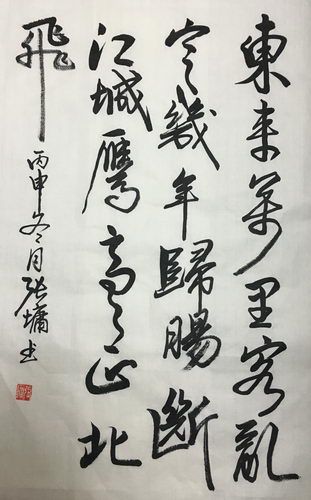 東来萬里客亂
定幾年歸腸斷
江城鴈高々正北
飛
丙申冬月張墉书